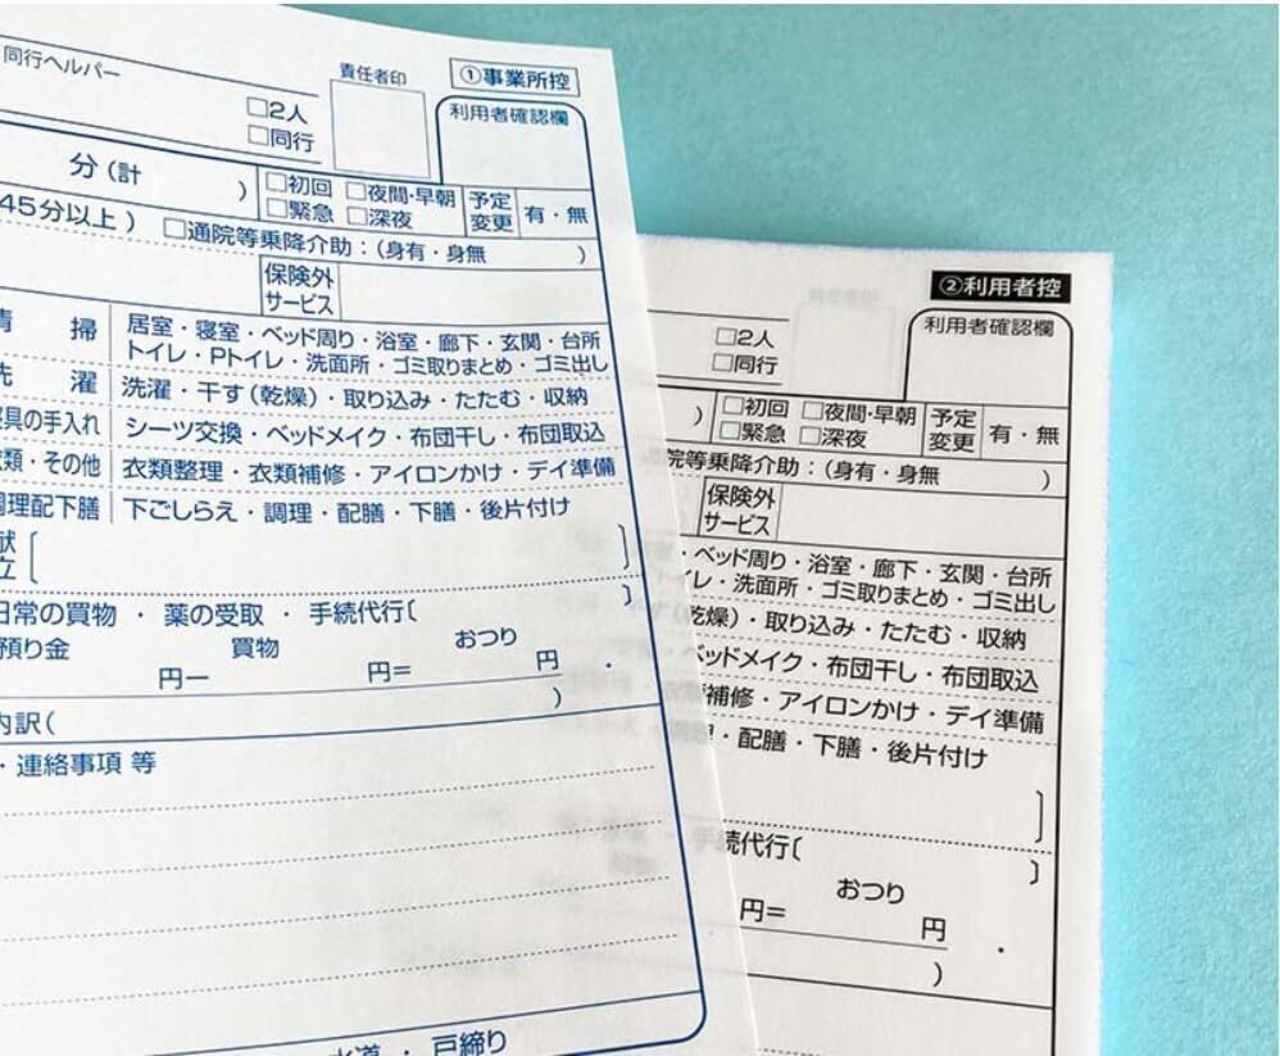 同行ヘルパー
責任者印
①事業所控
□2人
□同行
利用者確認欄
分(計 )
□初回 □夜間・早朝
□緊急 □深夜
予定
変更
有・無
45分以上) □通院等乗降介助:(身有・身無 )
保険外
サービス
掃 居室・寝室・ベッド周り・浴室・廊下・玄関・台所
トイレ・Pトイレ・洗面所・ゴミ取りまとめ・ゴミ出し
濯 洗濯・干す(乾燥)・取り込み・たたむ・収納
具の手入れ シーツ交換・ベッドメイク・布団干し・布団取込
類・その他 衣類整理・衣類補修・アイロンかけ・デイ準備
理配下膳 下ごしらえ・調理・配膳・下膳・後片付け
献
立 [ ]
日常の買物 ・ 薬の受取 ・ 手続代行〔 〕
預り金 買物 おつり
円ー 円= 円 ・
内訳( )
・連絡事項 等
水道 ・ 戸締り
②利用者控
□2人
□同行
利用者確認欄
)
□初回 □夜間・早朝
□緊急 □深夜
予定
変更
有・無
院等乗降介助:(身有・身無 )
保険外
サービス
・ベッド周り・浴室・廊下・玄関・台所
イレ・洗面所・ゴミ取りまとめ・ゴミ出し
乾燥)・取り込み・たたむ・収納
ベッドメイク・布団干し・布団取込
補修・アイロンかけ・デイ準備
・配膳・下膳・後片付け
]
手続代行〔 〕
おつり
円= 円 ・
)